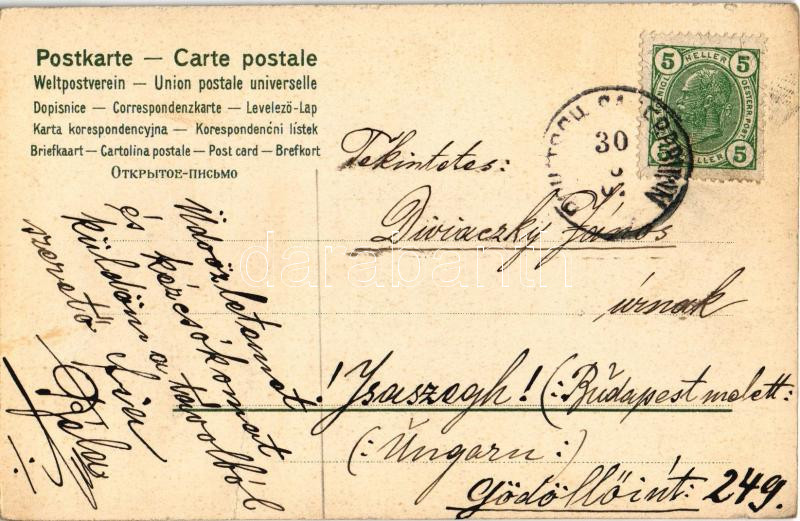 Postkarte — Carte postale
Weltpostverein — Union postale universelle
Dopisnice — Correspondenzkarte — Levelező-Lap
Karta korespondencyjna — Korespondenční lístek
Briefkaart — Cartolina postale — Post card — Brefkort
Открытое-письмо
5 HELLER 5
5 HELLER 5
30
Tekintetes:
Diviaczky János
úrnak
! Isaszegh! (: Budapest melett:
(: Ungarn :)
Gödöllőint: 249.
Üdvözletemet
és kézcsókomat
küldöm a távolból
szerető fia
Béla
darabanth